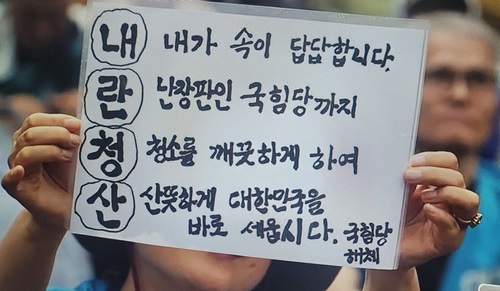 내 내가 속이 답답합니다.
란 난장판인 국힘당까지
청 청소를 깨끗하게 하여
산 산뜻하게 대한민국을
바로 세웁시다. 국힘당
해체